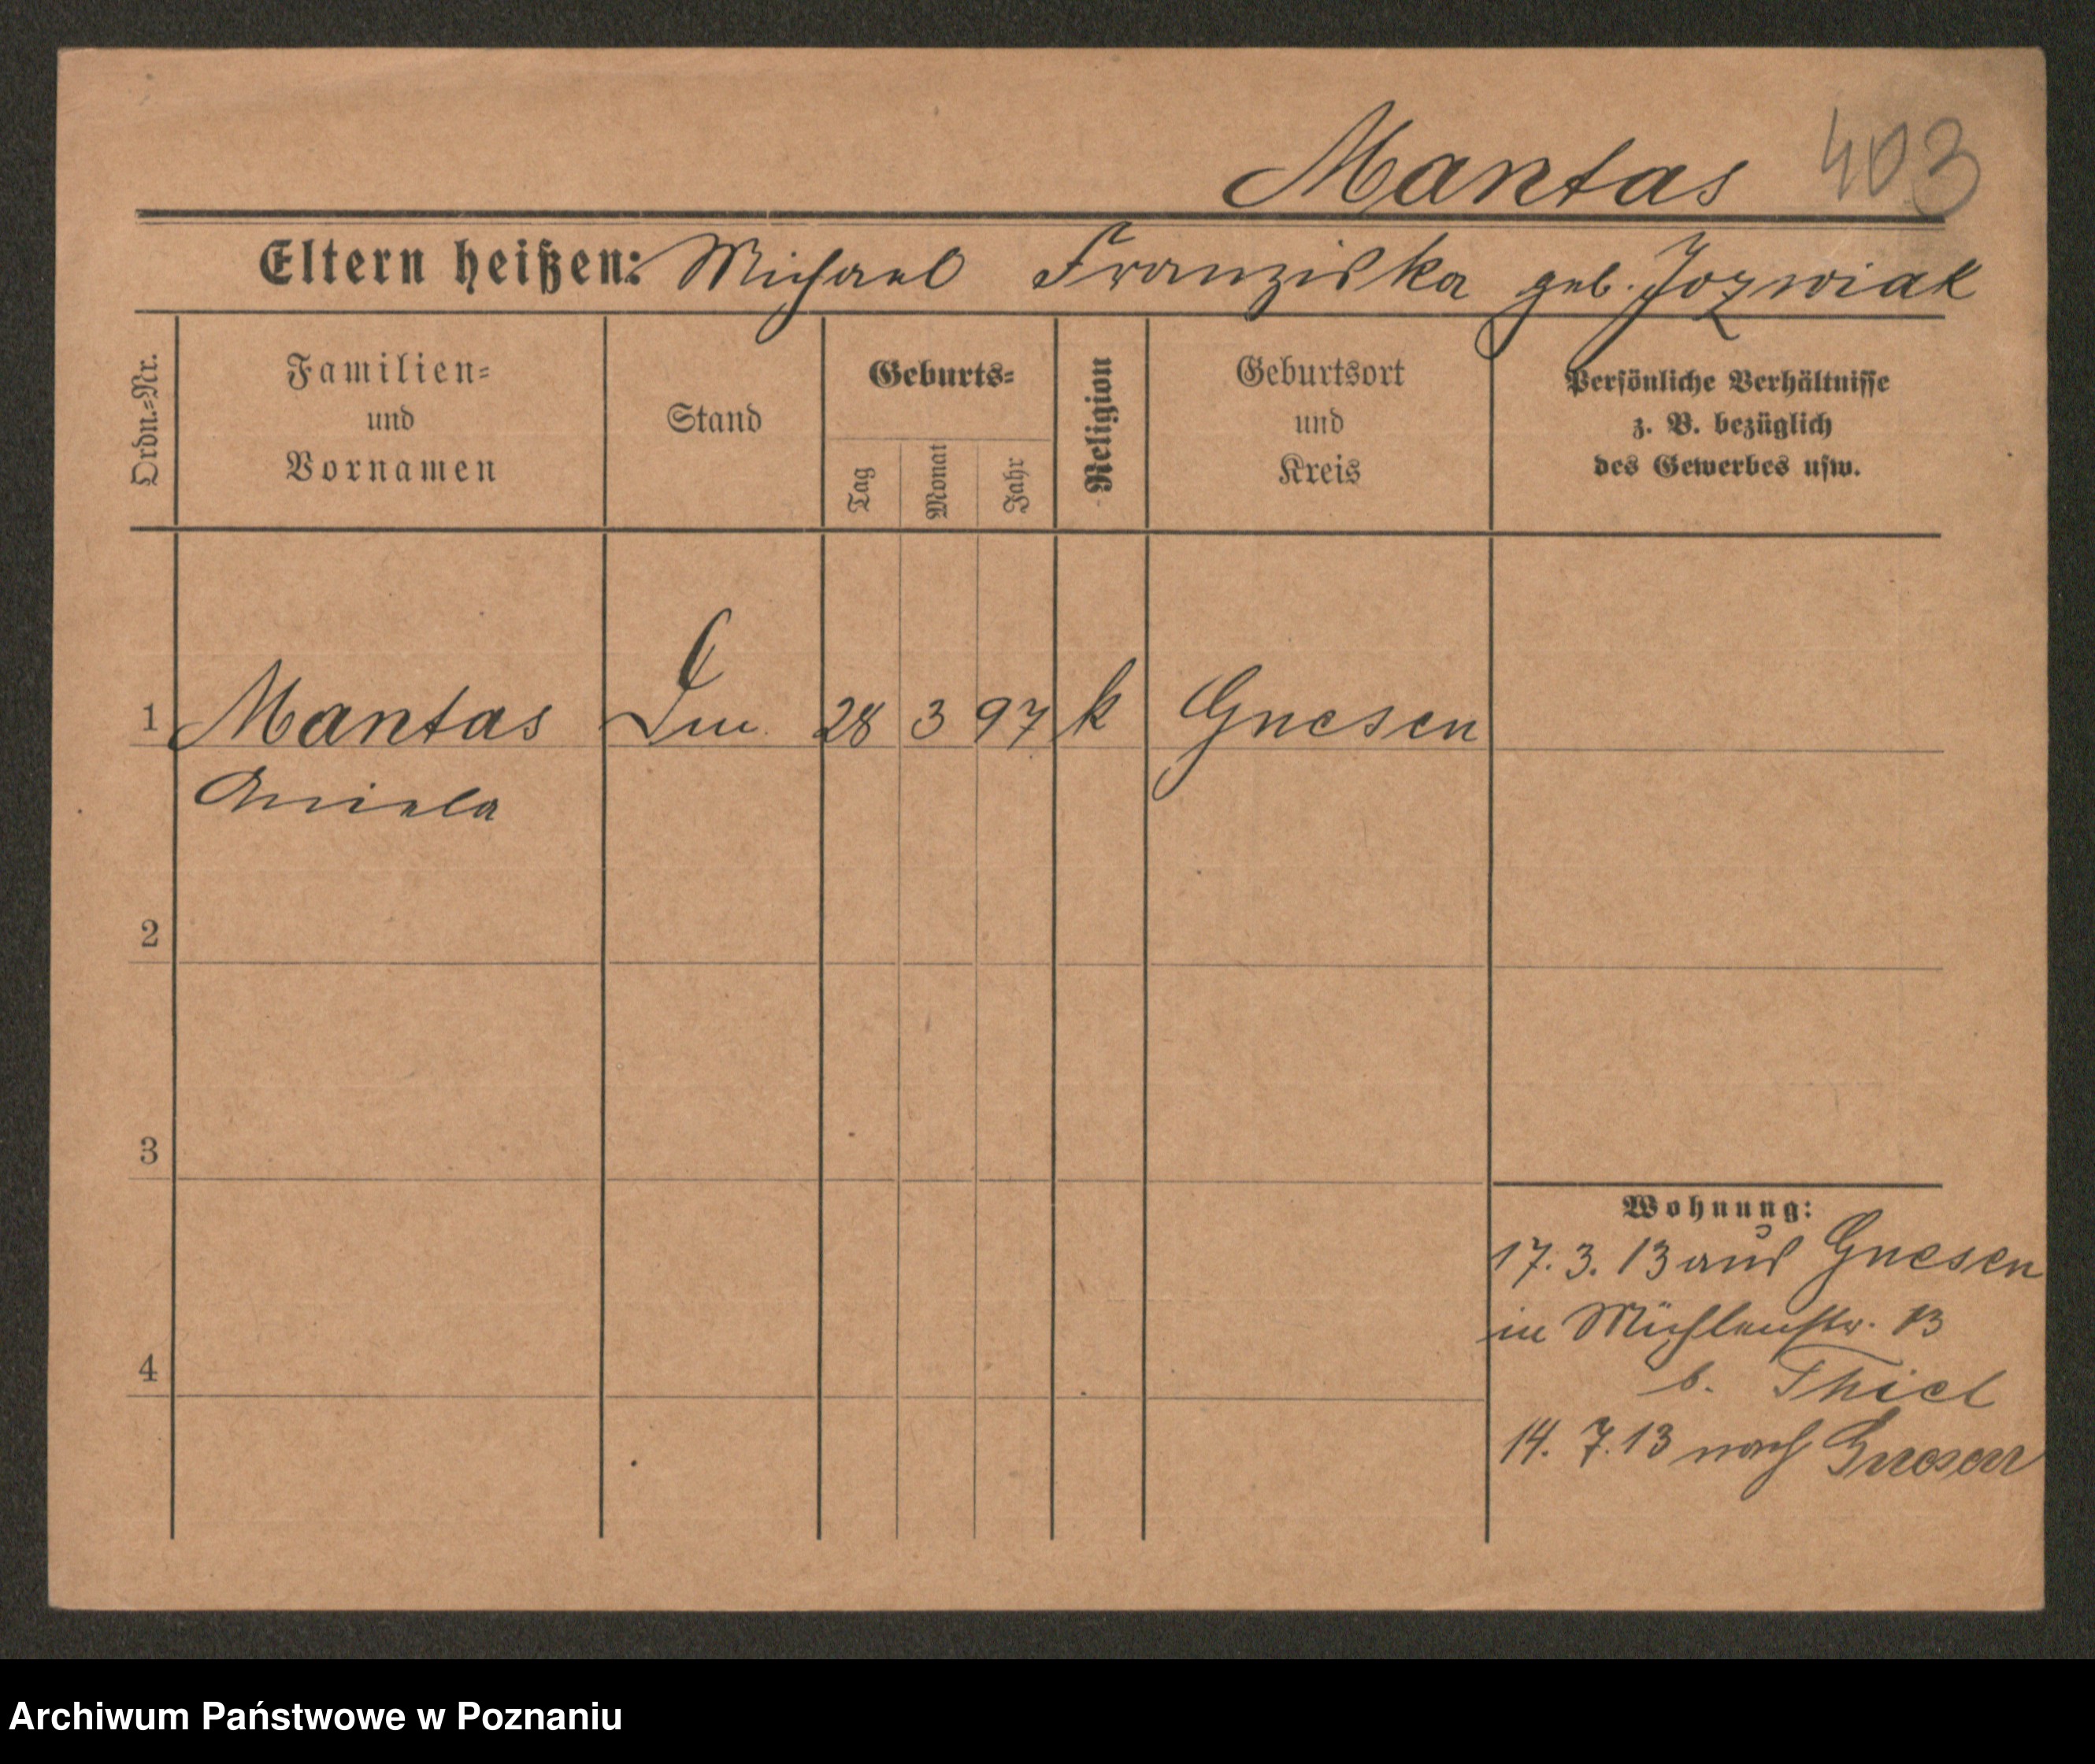 Mantas 403
Eltern heißen: Michael Franziska geb. Jozwiak
Ordn.-Nr.
Familien-
und
Vornamen
Stand
Geburts-
Tag
Monat
Jahr
Religion
Geburtsort
und
Kreis
Persönliche Verhältnisse
z. B. bezüglich
des Gewerbes usw.
1 Mantas 28 3 97 k Gnesen
Aniela
2
3
4
Wohnung:
17. 3. 13 aus Gnesen
in Mühlenstr. 13
b. Thiel
14. 7. 13 nach Gnesen
Archiwum Państwowe w Poznaniu